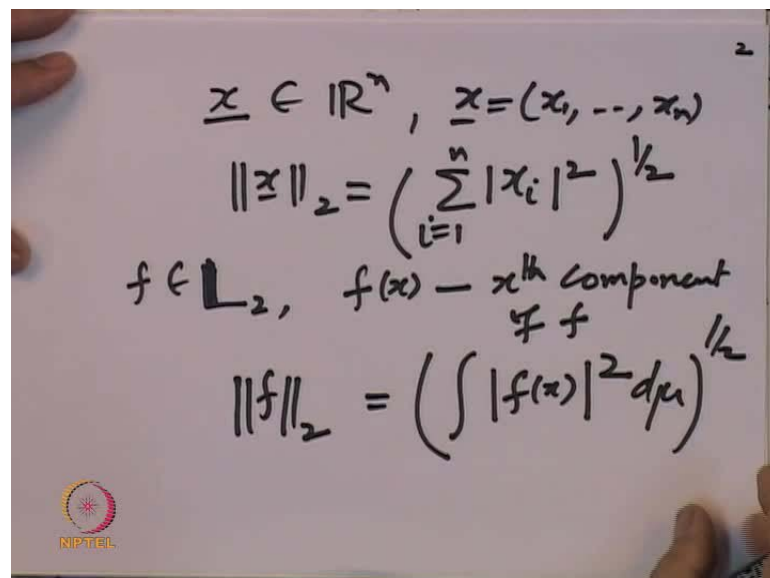 2
x ∈ ℝⁿ, x = (x₁, --, xₙ)
||x||₂ = ( ∑ᵢ₌₁ⁿ |xᵢ|² )^1/2
f ∈ L₂, f(x) — xth component
of f
||f||₂ = ( ∫ |f(x)|² dμ )^1/2
NPTEL